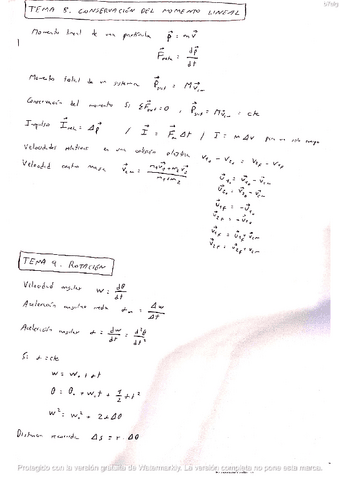 TEMA 8. CONSERVACIÓN DEL MOMENTO LINEAL
Momento lineal de una partícula p⃗ = mv⃗
F⃗neta = dp⃗/dt
Momento total de un sistema P⃗sist = Mv⃗cm
Conservación del momento Si ΣF⃗ext = 0, P⃗sist = Mv⃗cm = cte
Impulso I⃗neta = Δp⃗ / I⃗ = F⃗m Δt / I = m Δv
Velocidades relativas en una colisión elástica
Velocidad centro masa v⃗cm = (m₁v⃗₁ + m₂v⃗₂)/(m₁ + m₂)
TEMA 9. ROTACIÓN
Velocidad angular w = dθ/dt
Aceleración angular media αm = Δw/Δt
Aceleración angular α = dw/dt = d²θ/dt²
Si α = cte
w = w₀ + αt
θ = θ₀ + w₀t + ½αt²
w² = w₀² + 2αΔθ
Distancia recorrida Δs = r·Δθ
Protegido con la versión gratuita de Watermarkly. La versión completa no pone esta marca.